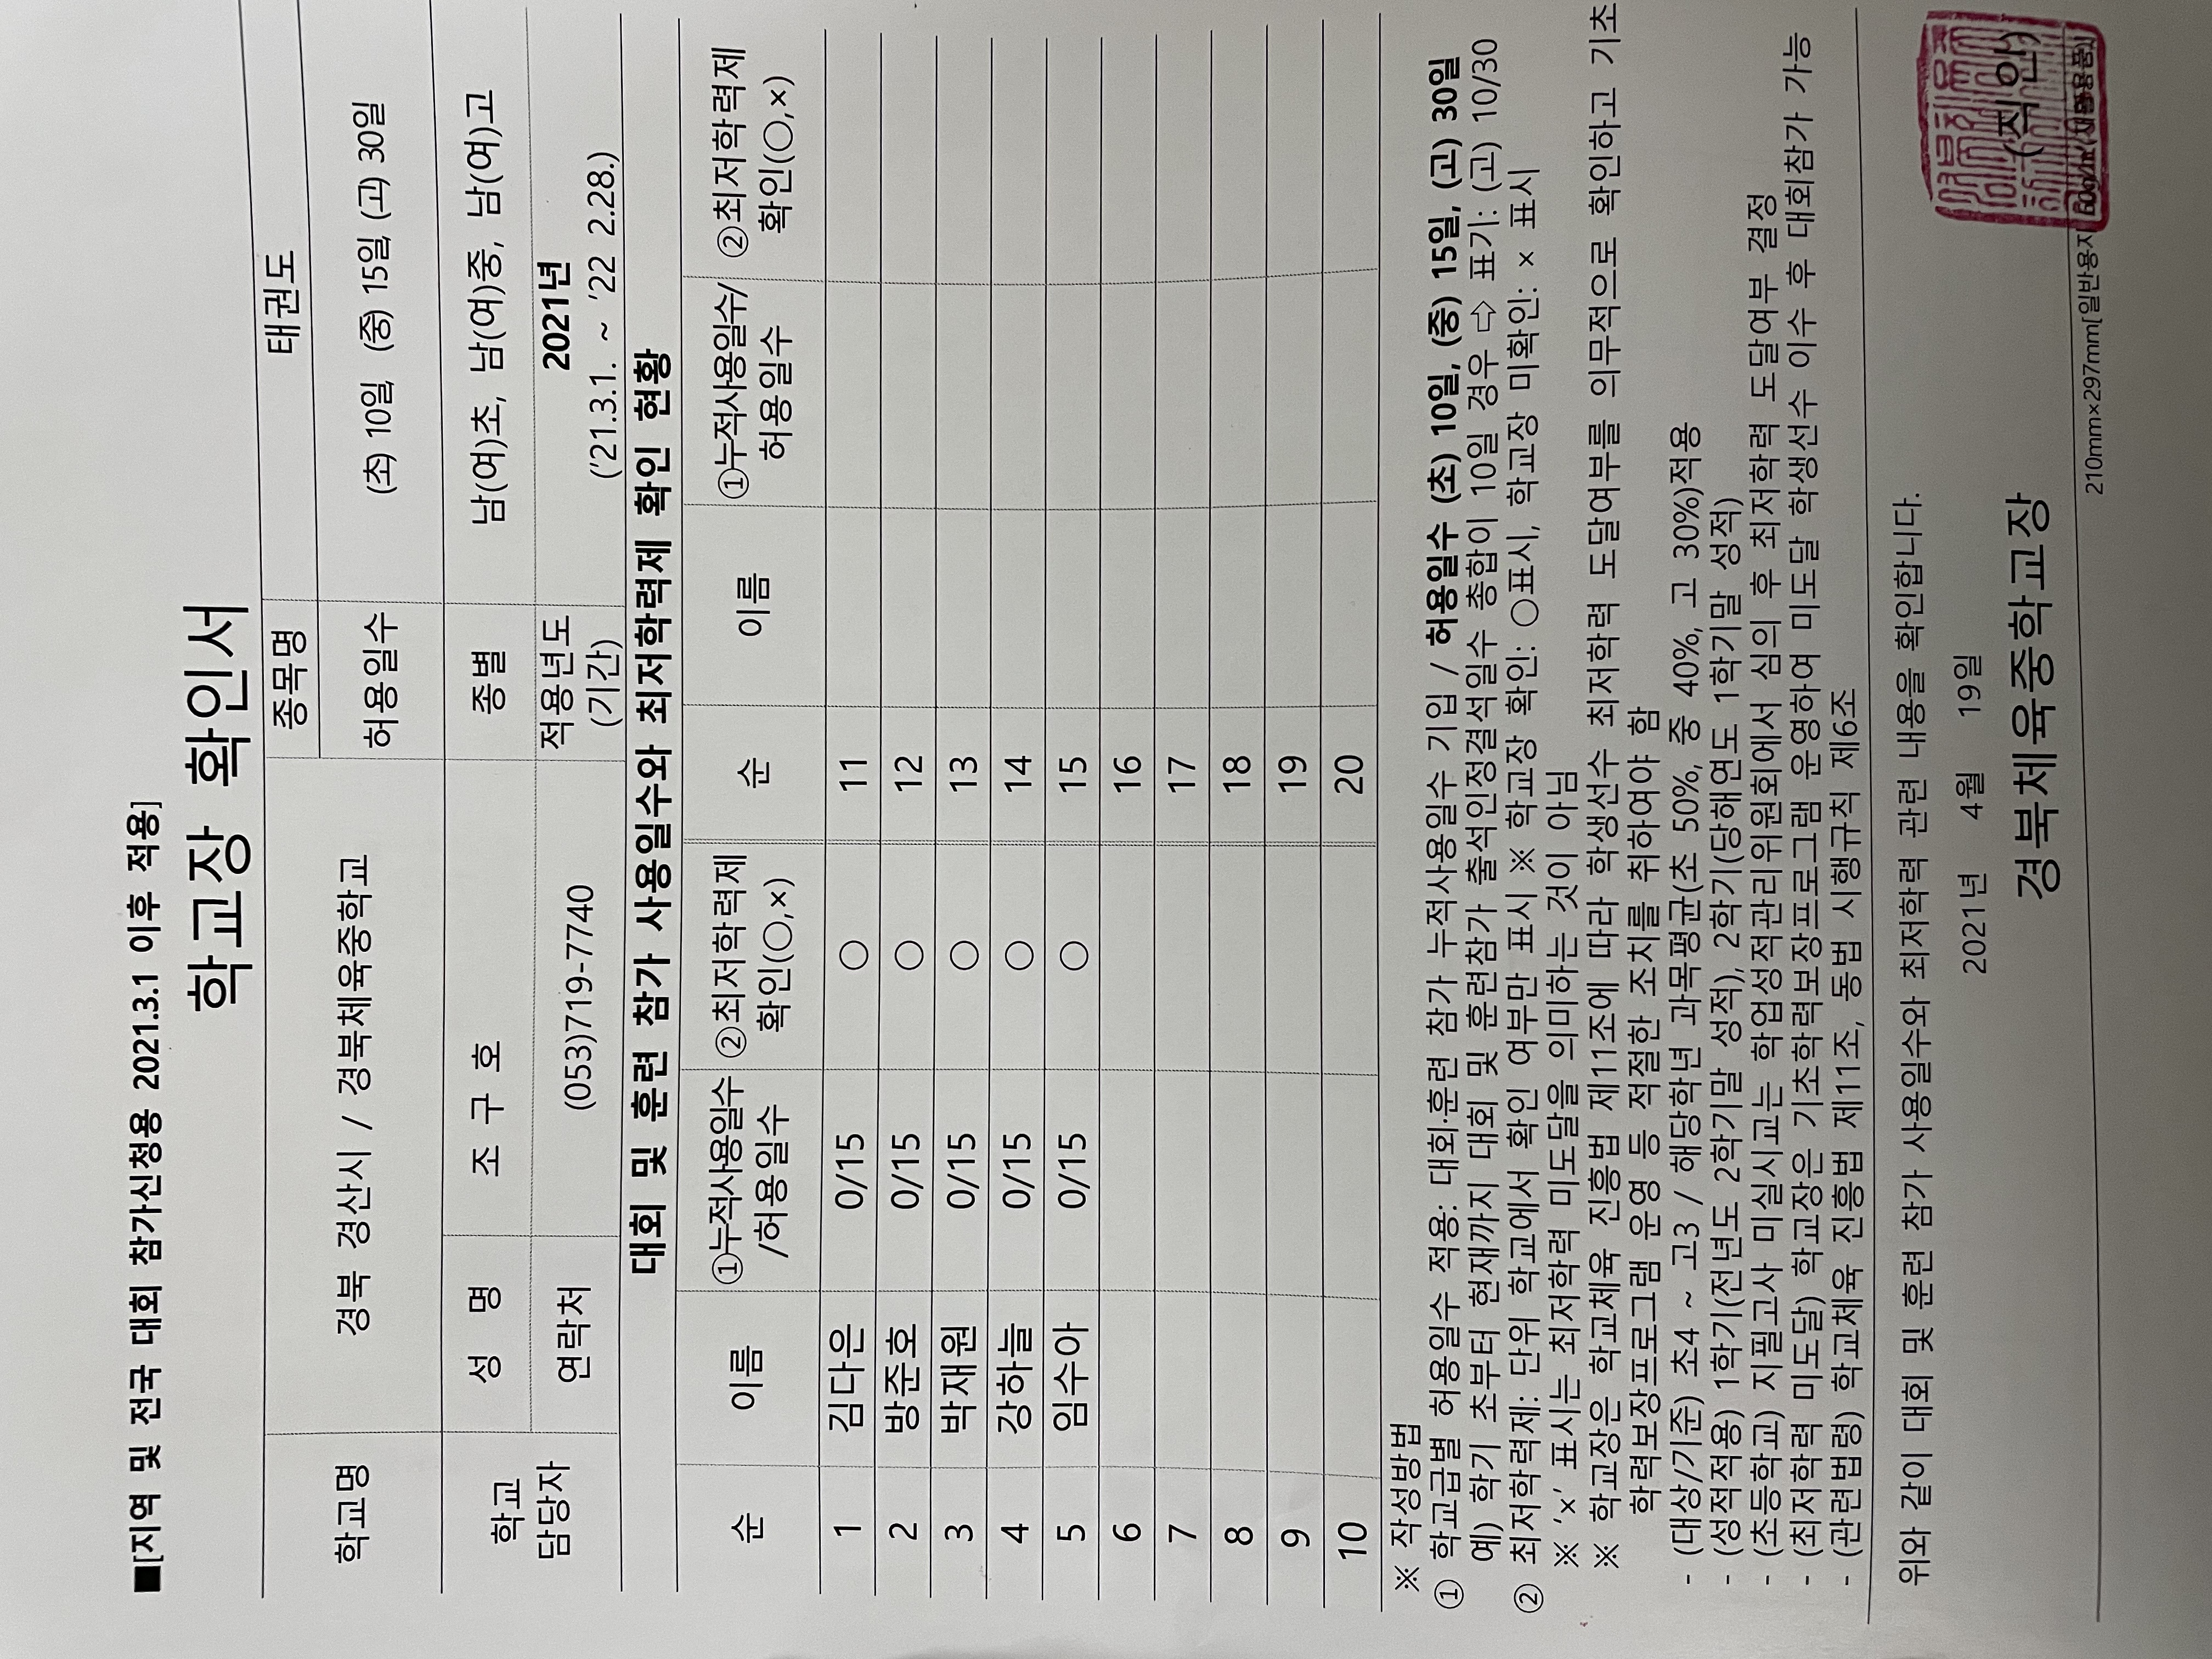 ■[지역 및 전국 대회 참가신청용 2021.3.1 이후 적용]
학교장 확인서
학교명 경북 경산시 / 경북체육중학교 종목명 태권도
허용일수 (초) 10일, (중) 15일, (고) 30일
학교 담당자 성 명 조 구 호 종별 남(여)초, 남(여)중, 남(여)고
연락처 (053)719-7740 적용년도 (기간) 2021년 ('21.3.1. ~ '22 2.28.)
대회 및 훈련 참가 사용일수와 최저학력제 확인 현황
순 이름 ①누적사용일수 /허용일수 ②최저학력제 확인(○,×) 순 이름 ①누적사용일수/ 허용일수 ②최저학력제 확인(○,×)
1 김다은 0/15 ○ 11
2 방준호 0/15 ○ 12
3 박재원 0/15 ○ 13
4 강하늘 0/15 ○ 14
5 임수아 0/15 ○ 15
6 16
7 17
8 18
9 19
10 20
※ 작성방법
① 학교급별 허용일수 적용: 대회·훈련 참가 누적사용일수 기입 / 허용일수 (초) 10일, (중) 15일, (고) 30일
예) 학기 초부터 현재까지 대회 및 훈련참가 출석인정결석일수 총합이 10일 경우 ⇨ 표기: (고) 10/30
② 최저학력제: 단위 학교에서 확인 여부만 표시 ※ 학교장 확인: ○표시, 학교장 미확인: × 표시
※ '×' 표시는 최저학력 미도달을 의미하는 것이 아님
※ 학교장은 학교체육 진흥법 제11조에 따라 학생선수 최저학력 도달여부를 의무적으로 확인하고 기초
학력보장프로그램 운영 등 적절한 조치를 취하여야 함
- (대상/기준) 초4 ~ 고3 / 해당학년 과목평균(초 50%, 중 40%, 고 30%)적용
- (성적적용) 1학기(전년도 2학기말 성적), 2학기(당해연도 1학기말 성적)
- (초등학교) 지필고사 미실시교는 학업성적관리위원회에서 심의 후 최저학력 도달여부 결정
- (최저학력 미도달) 학교장은 기초학력보장프로그램 운영하여 미도달 학생선수 이수 후 대회참가 가능
- (관련법령) 학교체육 진흥법 제11조, 동법 시행규칙 제6조
위와 같이 대회 및 훈련 참가 사용일수와 최저학력 관련 내용을 확인합니다.
2021년 4월 19일
경북체육중학교장 (직인)
210mm×297mm[일반용지 60g/㎡(재활용품)]